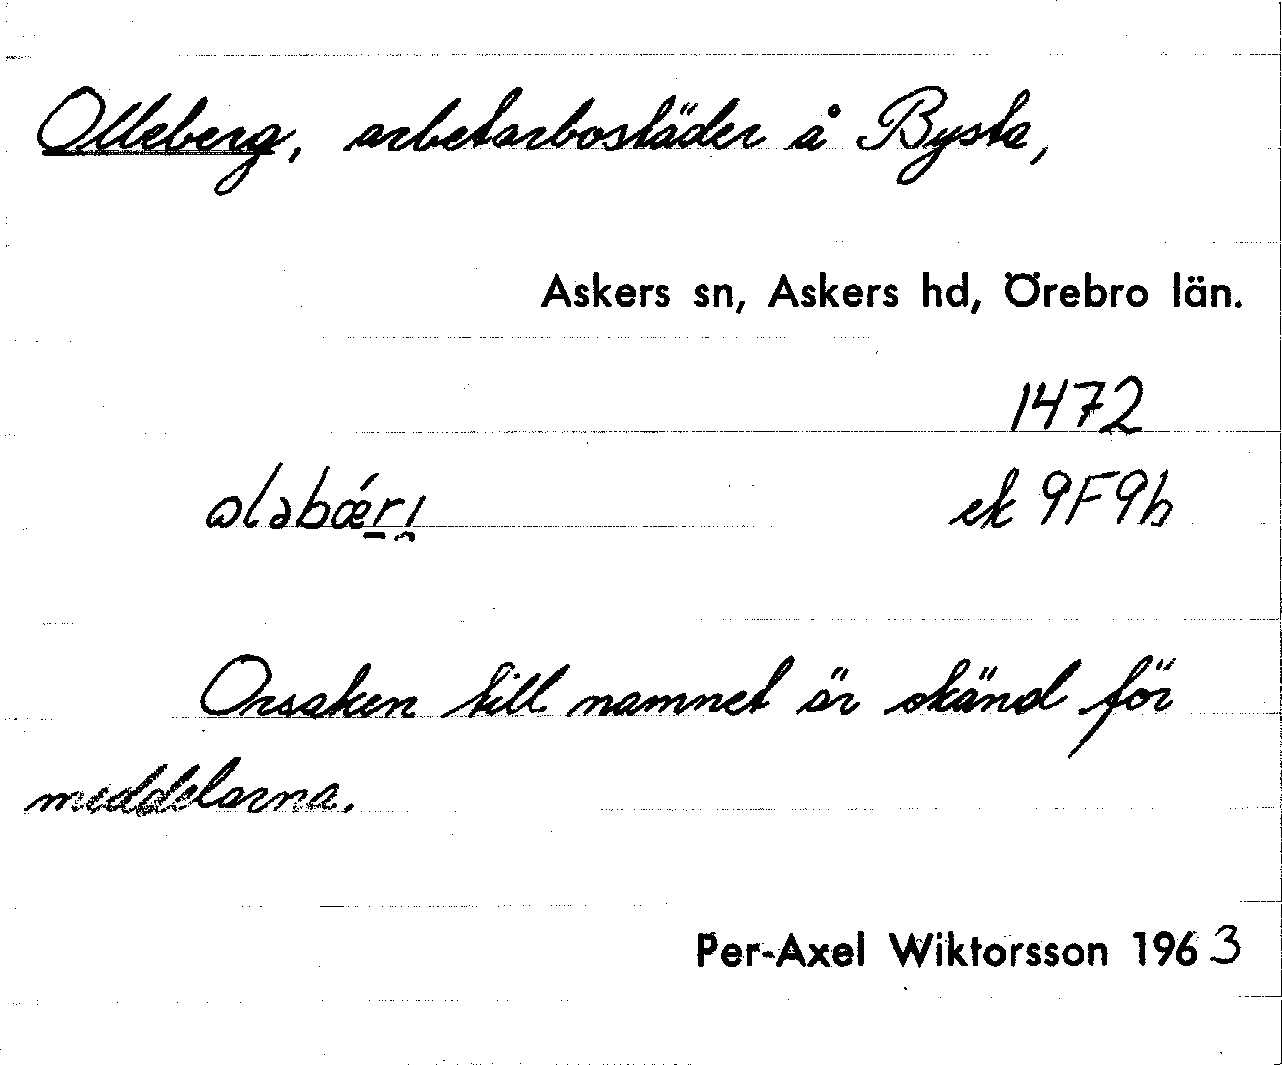 Olleberg, arbetarbostäder å Bysta,
Askers sn, Askers hd, Örebro län.
1472
ek 9F9h
Orsaken till namnet är okänd för
meddelarna.
Per-Axel Wiktorsson 1963